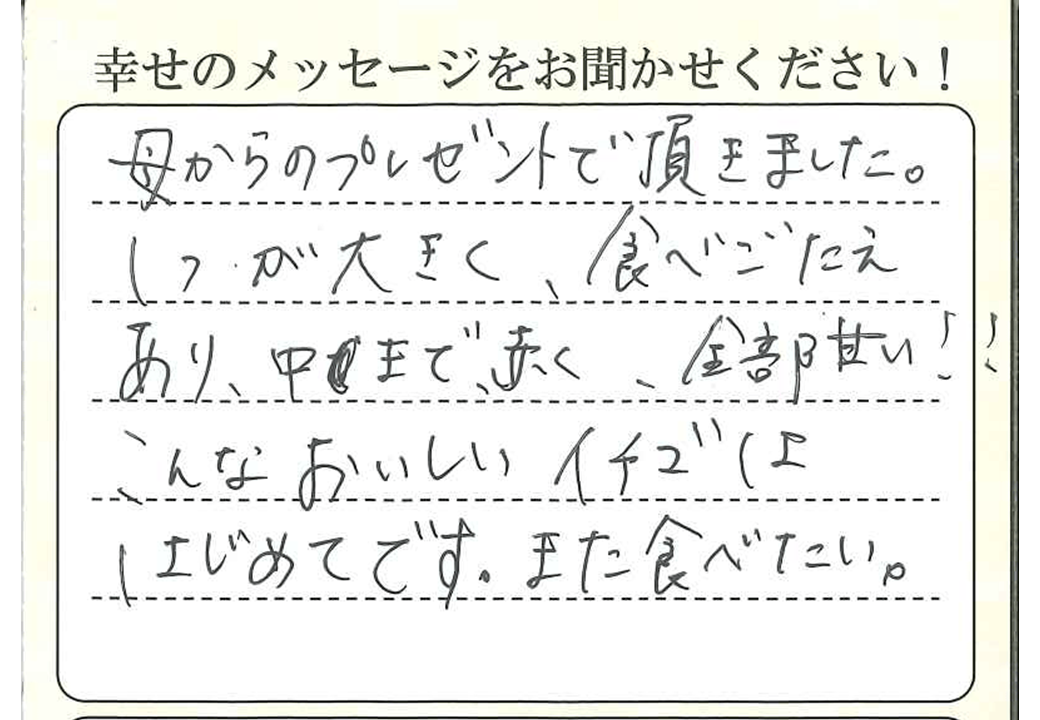 幸せのメッセージをお聞かせください!
母からのプレゼントで頂きました。
1つが大きく、食べごたえ
あり、中まで、赤く、全部甘い!!
こんなおいしいイチゴは
はじめてです。また食べたい。